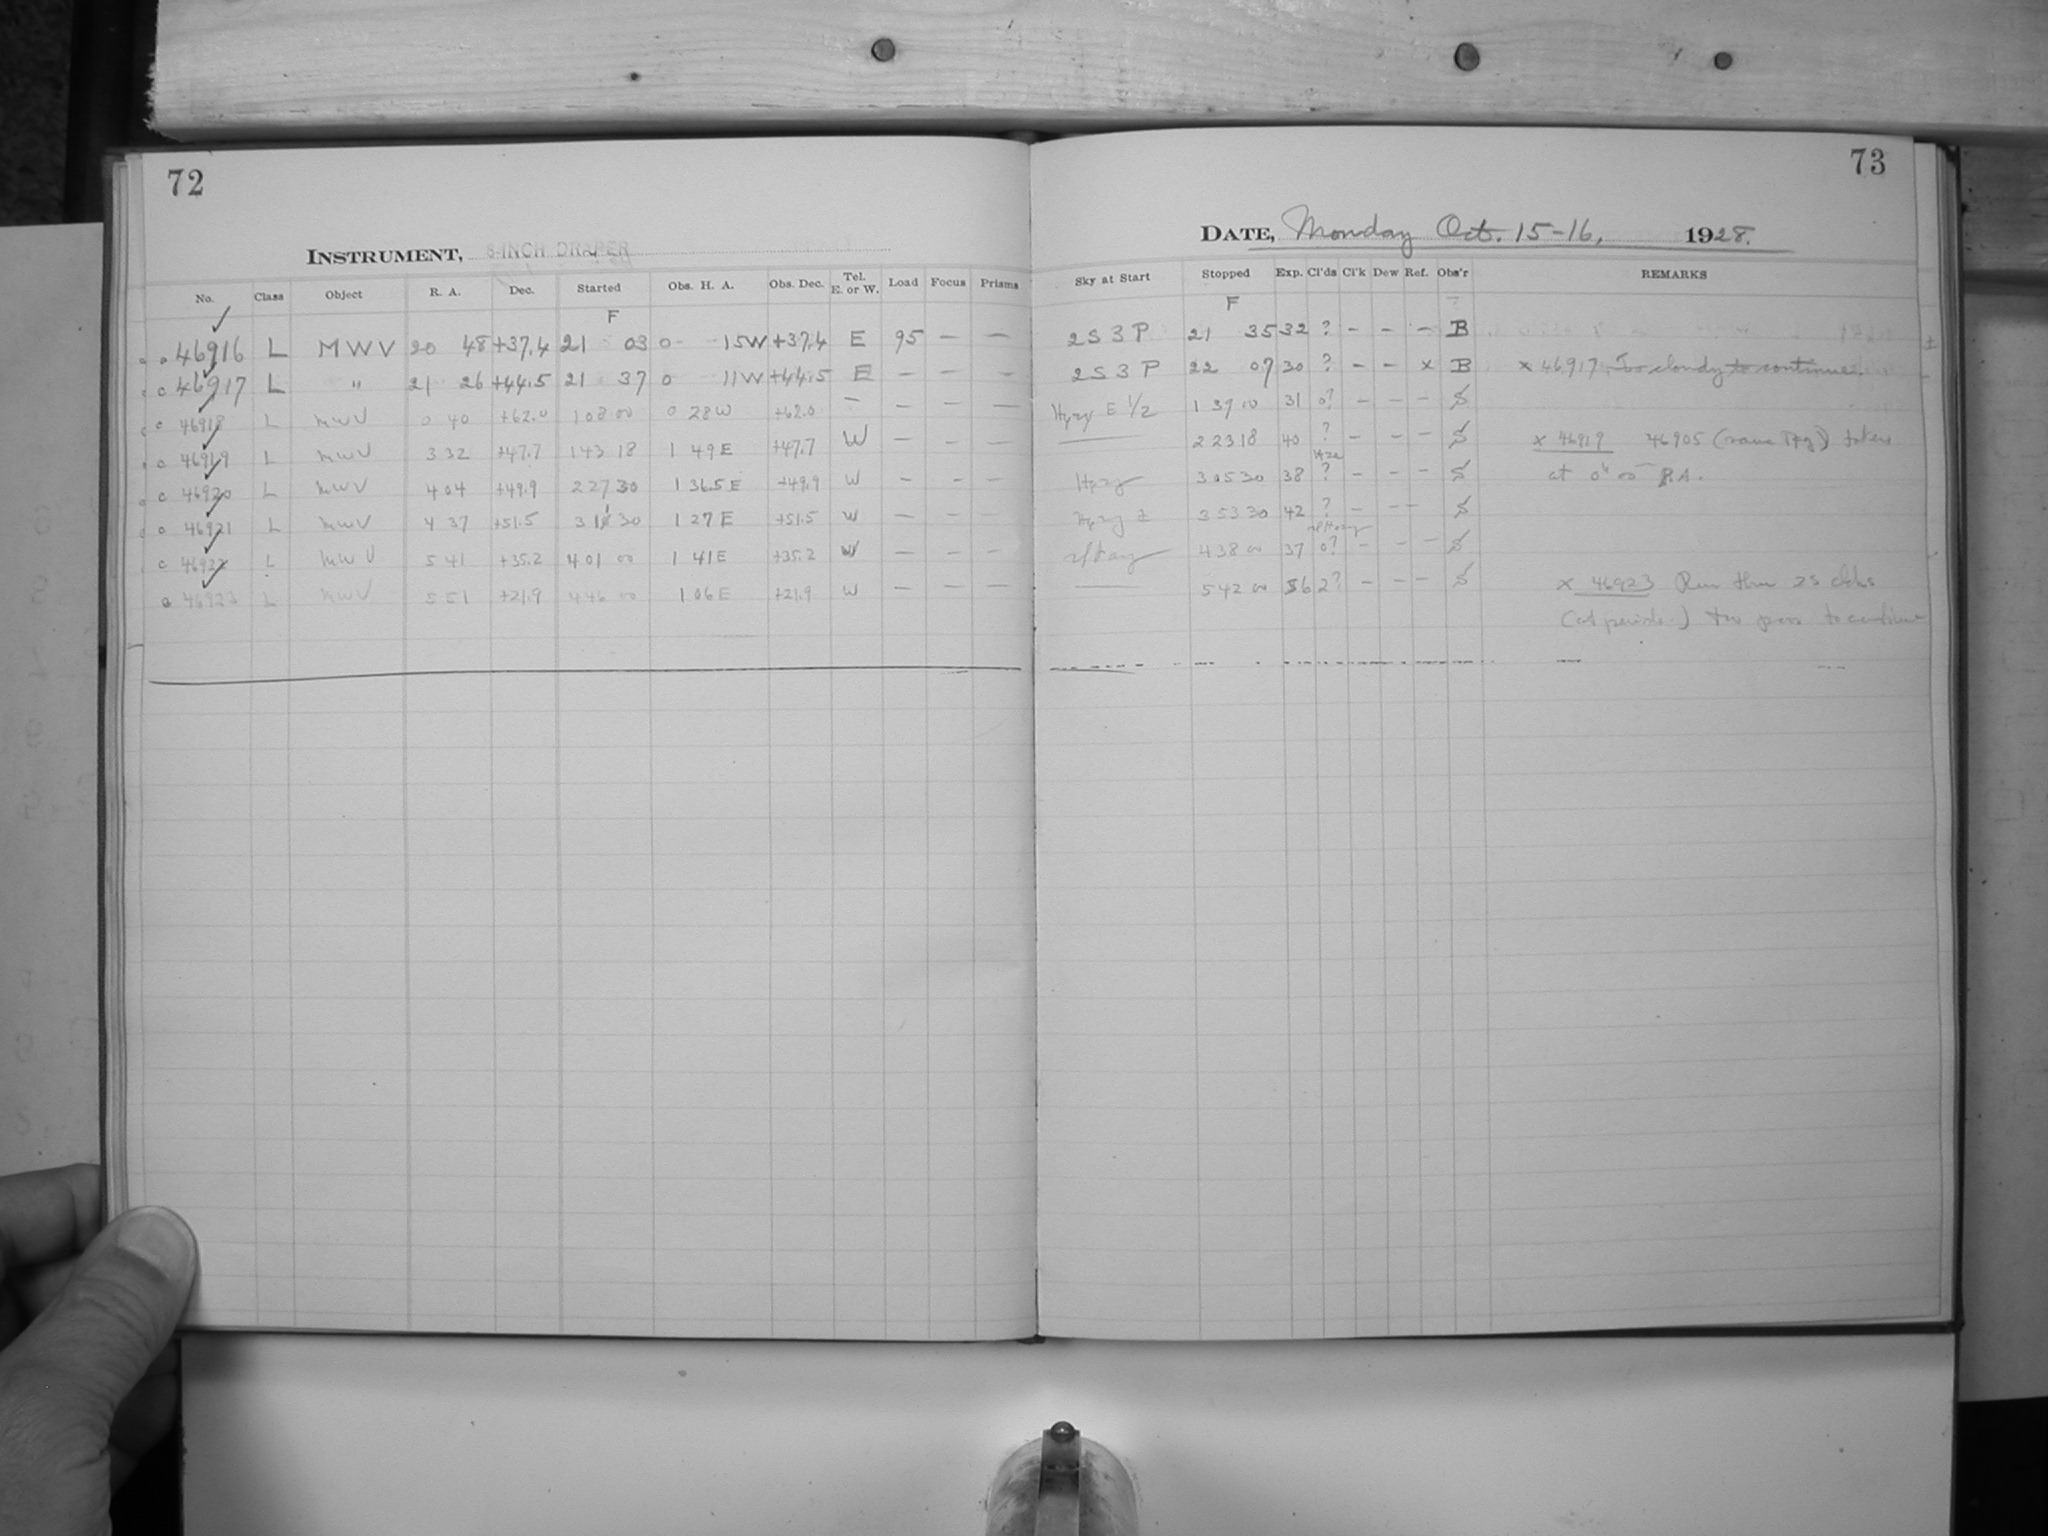 72
73
INSTRUMENT, 8-INCH DRAPER
DATE, Monday Oct. 15-16, 1928.
No. Class Object R. A. Dec. Started Obs. H. A. Obs. Dec. Tel. E. or W. Load Focus Prisms Sky at Start Stopped Exp. Cl'ds Cl'k Dew Ref. Obs'r REMARKS
F F
46916 L MWV 20 48 +37.4 21 03 0 15W +37.4 E 95 — — 2S3P 21 35 32 ? - - - B
46917 L " 21 26 +44.5 21 37 0 11W +44.5 E — — — 2S3P 22 07 30 ? - - x B x 46917. Too cloudy to continue.
46918 L MWV 0 40 +62.0 1 08 00 0 28W +62.0 — — — — E 1/2 1 39 00 31 0? - - - S
46919 L MWV 3 32 +47.7 1 43 18 1 49E +47.7 W — — — — 2 23 18 40 ? - - - S x 46919 46905 taken
46920 L MWV 4 04 +49.9 2 27 30 1 36.5E +49.9 W — — — 3 05 30 38 ? - - - S at 0h 00 R.A.
46921 L MWV 4 37 +51.5 3 11 30 1 27E +51.5 W — — — 3 53 30 42 ? - - - S
46922 L MWV 5 41 +35.2 4 01 00 1 41E +35.2 W — — — 4 38 00 37 0? - - - S
46923 L MWV 5 51 +21.9 4 46 00 1 06E +21.9 W — — — — 5 42 00 56 2? - - - S x 46923 Run thru 2S
to continue